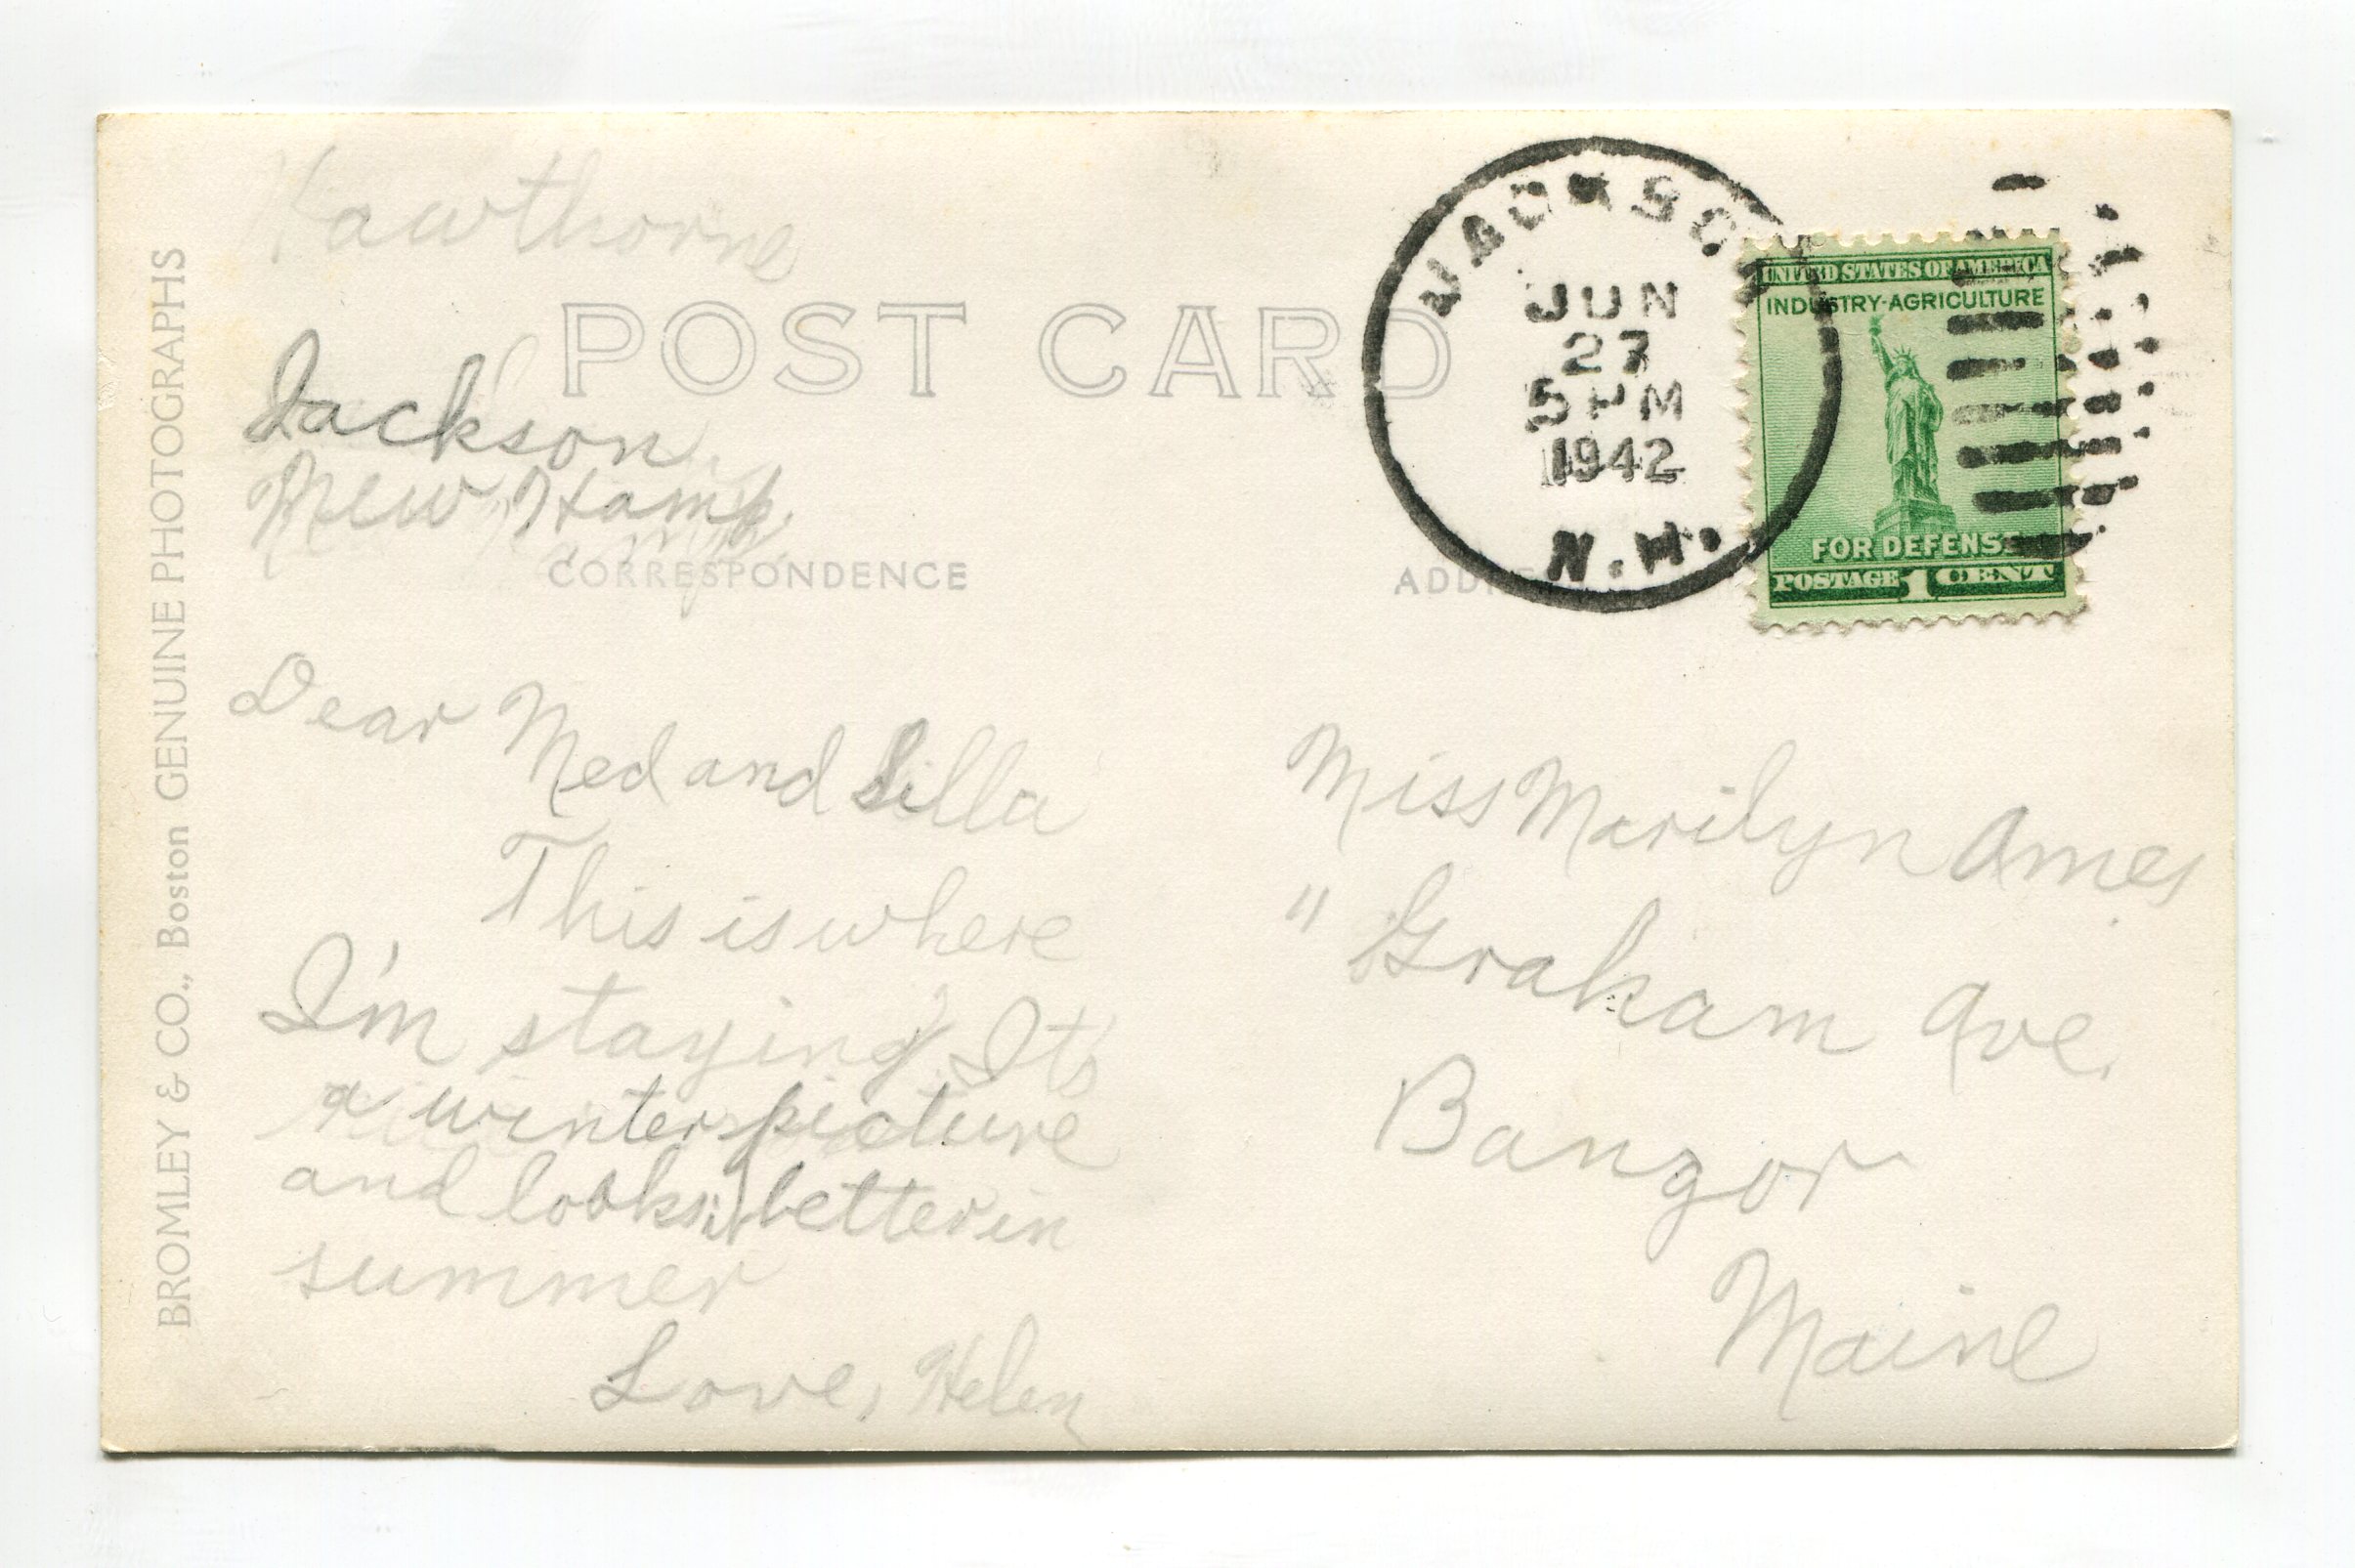 Hawthorne
POST CARD
Jackson
New Hamp.
CORRESPONDENCE
Dear Ned and Silla
This is where
I'm staying. It's
a winter picture
and looks better in
summer
Love, Helen
BROMLEY & CO., Boston GENUINE PHOTOGRAPHS
JACKSON
JUN
27
5 PM
1942
N.H.
UNITED STATES OF AMERICA
INDUSTRY-AGRICULTURE
FOR DEFENSE
POSTAGE 1 CENT
Miss Marilyn Ames
11 Graham Ave.
Bangor
Maine